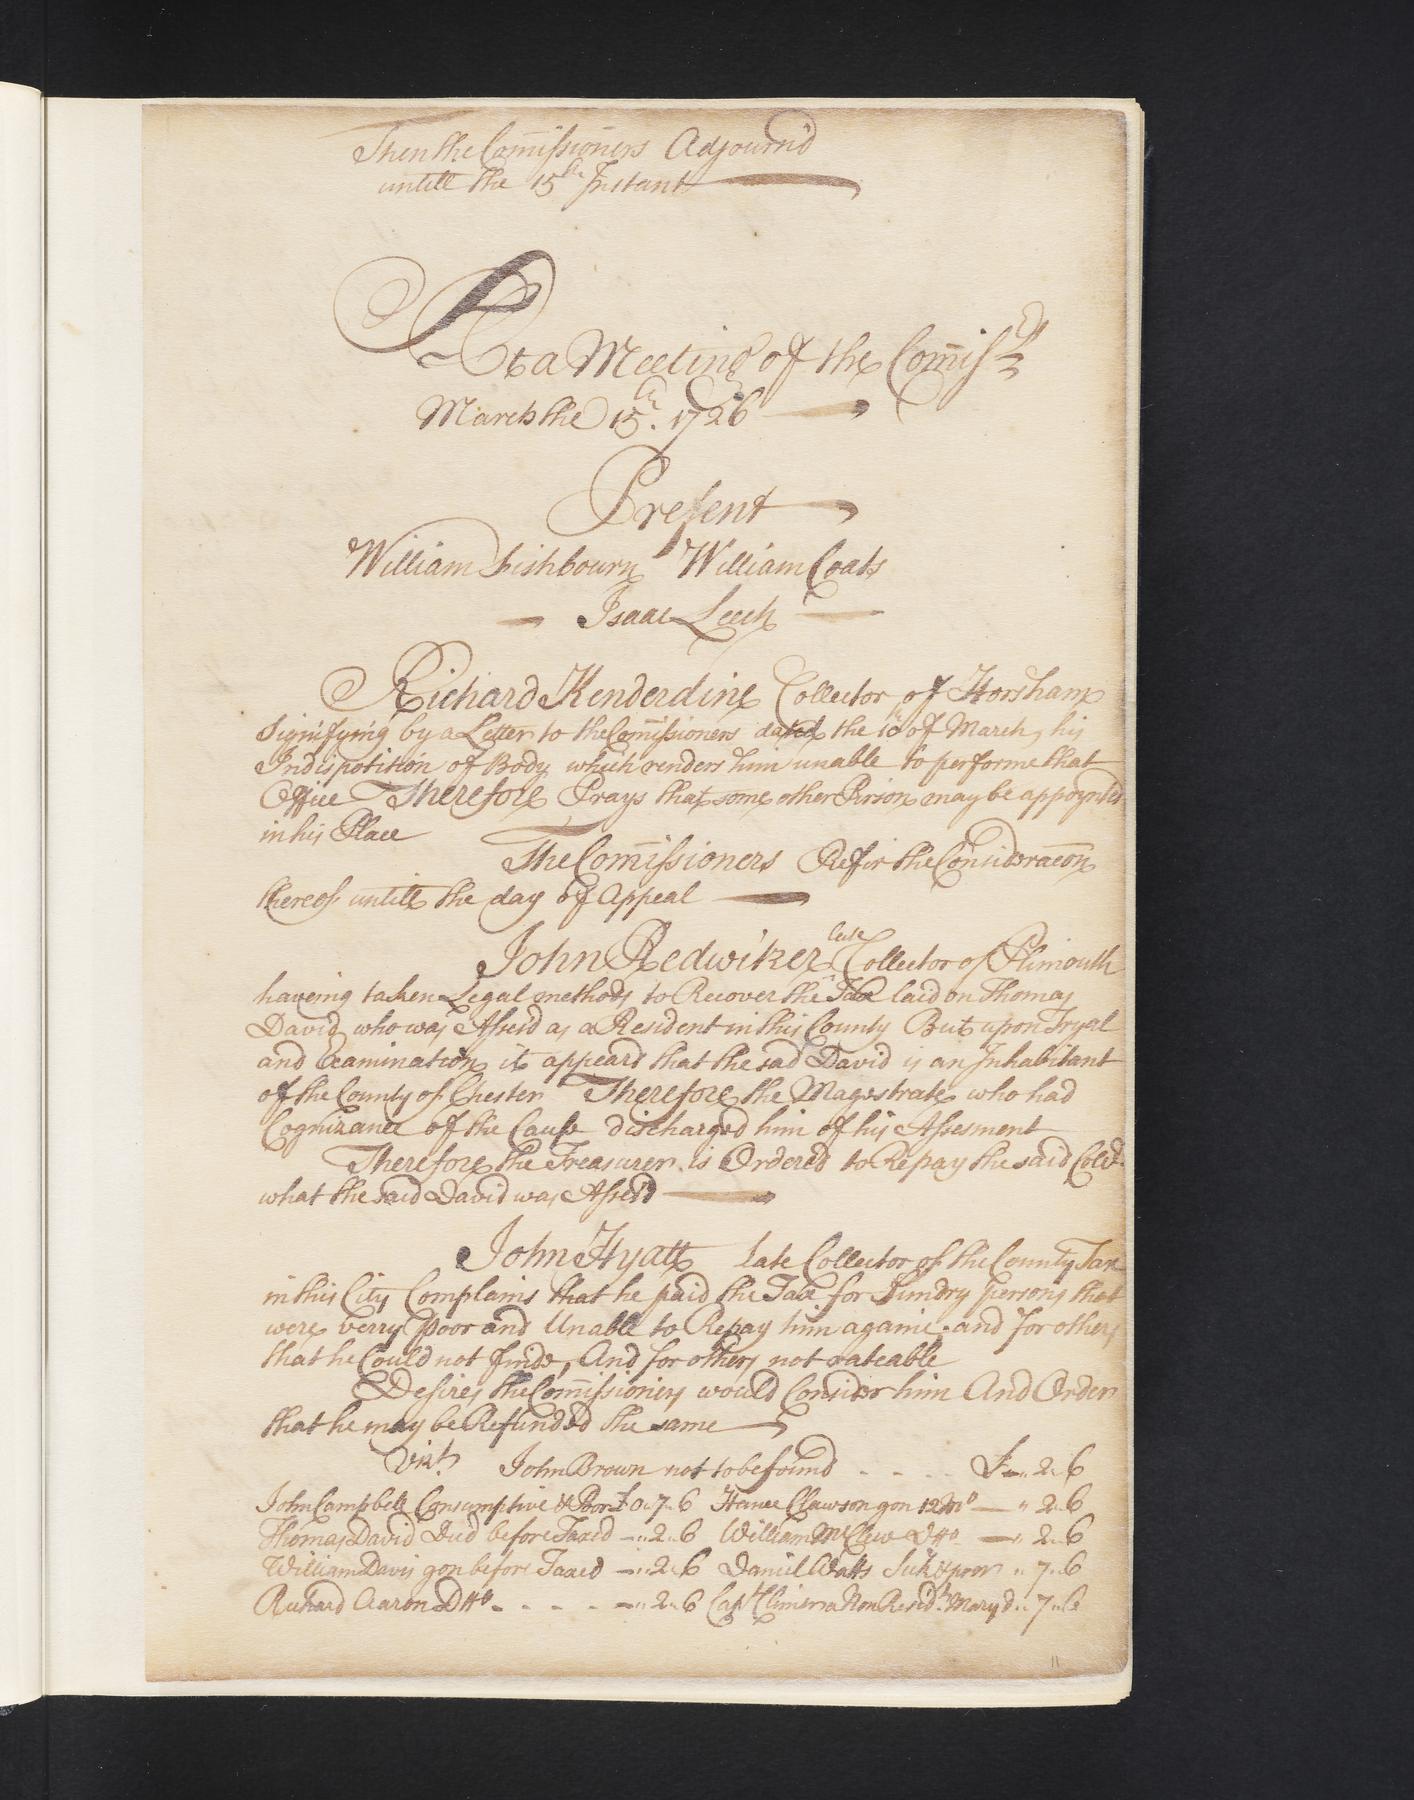 Then the Com̄issioners Adjourn'd
untill the 15th Instant
At a Meeting of the Com̄issrs
March the 15th. 1726
Present
William Fishbourn William Coats
Isaac Leech
Richard Kenderdine Collector of Horsham
Signifying by a Letter to the Com̄issioners dated the 10th of March, his
Indisposition of Body which renders him unable to performe that
Office Therefore Prays that some other Person may be appoynted
in his Place
The Com̄issioners Refer the Consideracon
thereof untill the day of Appeal
John Redwiker late Collector of Plimouth
haveing taken Legal methods to Recover the Tax laid on Thomas
David who was Assesd as a Resident in this County But upon Tryal
and Examination it appeard that the sad David is an Inhabitant
of the County of Chester Therefore the Magestrate who had
Cognizance of the Cause discharged him of his Assesment
Therefore the Treasurer is Ordered to Repay the said Colr.
what the said David was Assesd
John Hyatt late Collector of the County Tax
in this City Complains that he paid the Tax for Sundry persons that
were verry Poor and Unable to Repay him againe. and for others
that he Could not finde, And for others not rateable
Desires the Com̄issioners would Consider him And Order
that he may be Refunded the same
Vizt. John Brown not to be found - - - - £ - " 2 " 6
John Campbell Consumptive & Poor £ 0 " 7 " 6 Hance Clawson gon 12 Mo — " 2 " 6
Thomas David Died before Taxed — " 2 " 6 William McClew Dtto — " 2 " 6
William Davis gon before Taxed — " 2 " 6 Daniel Watts Sick & poor " 7 " 6
Richard Aaron Dtto - - - - — " 2 " 6 Capt Non Residt. Maryd " 7 " 6
11